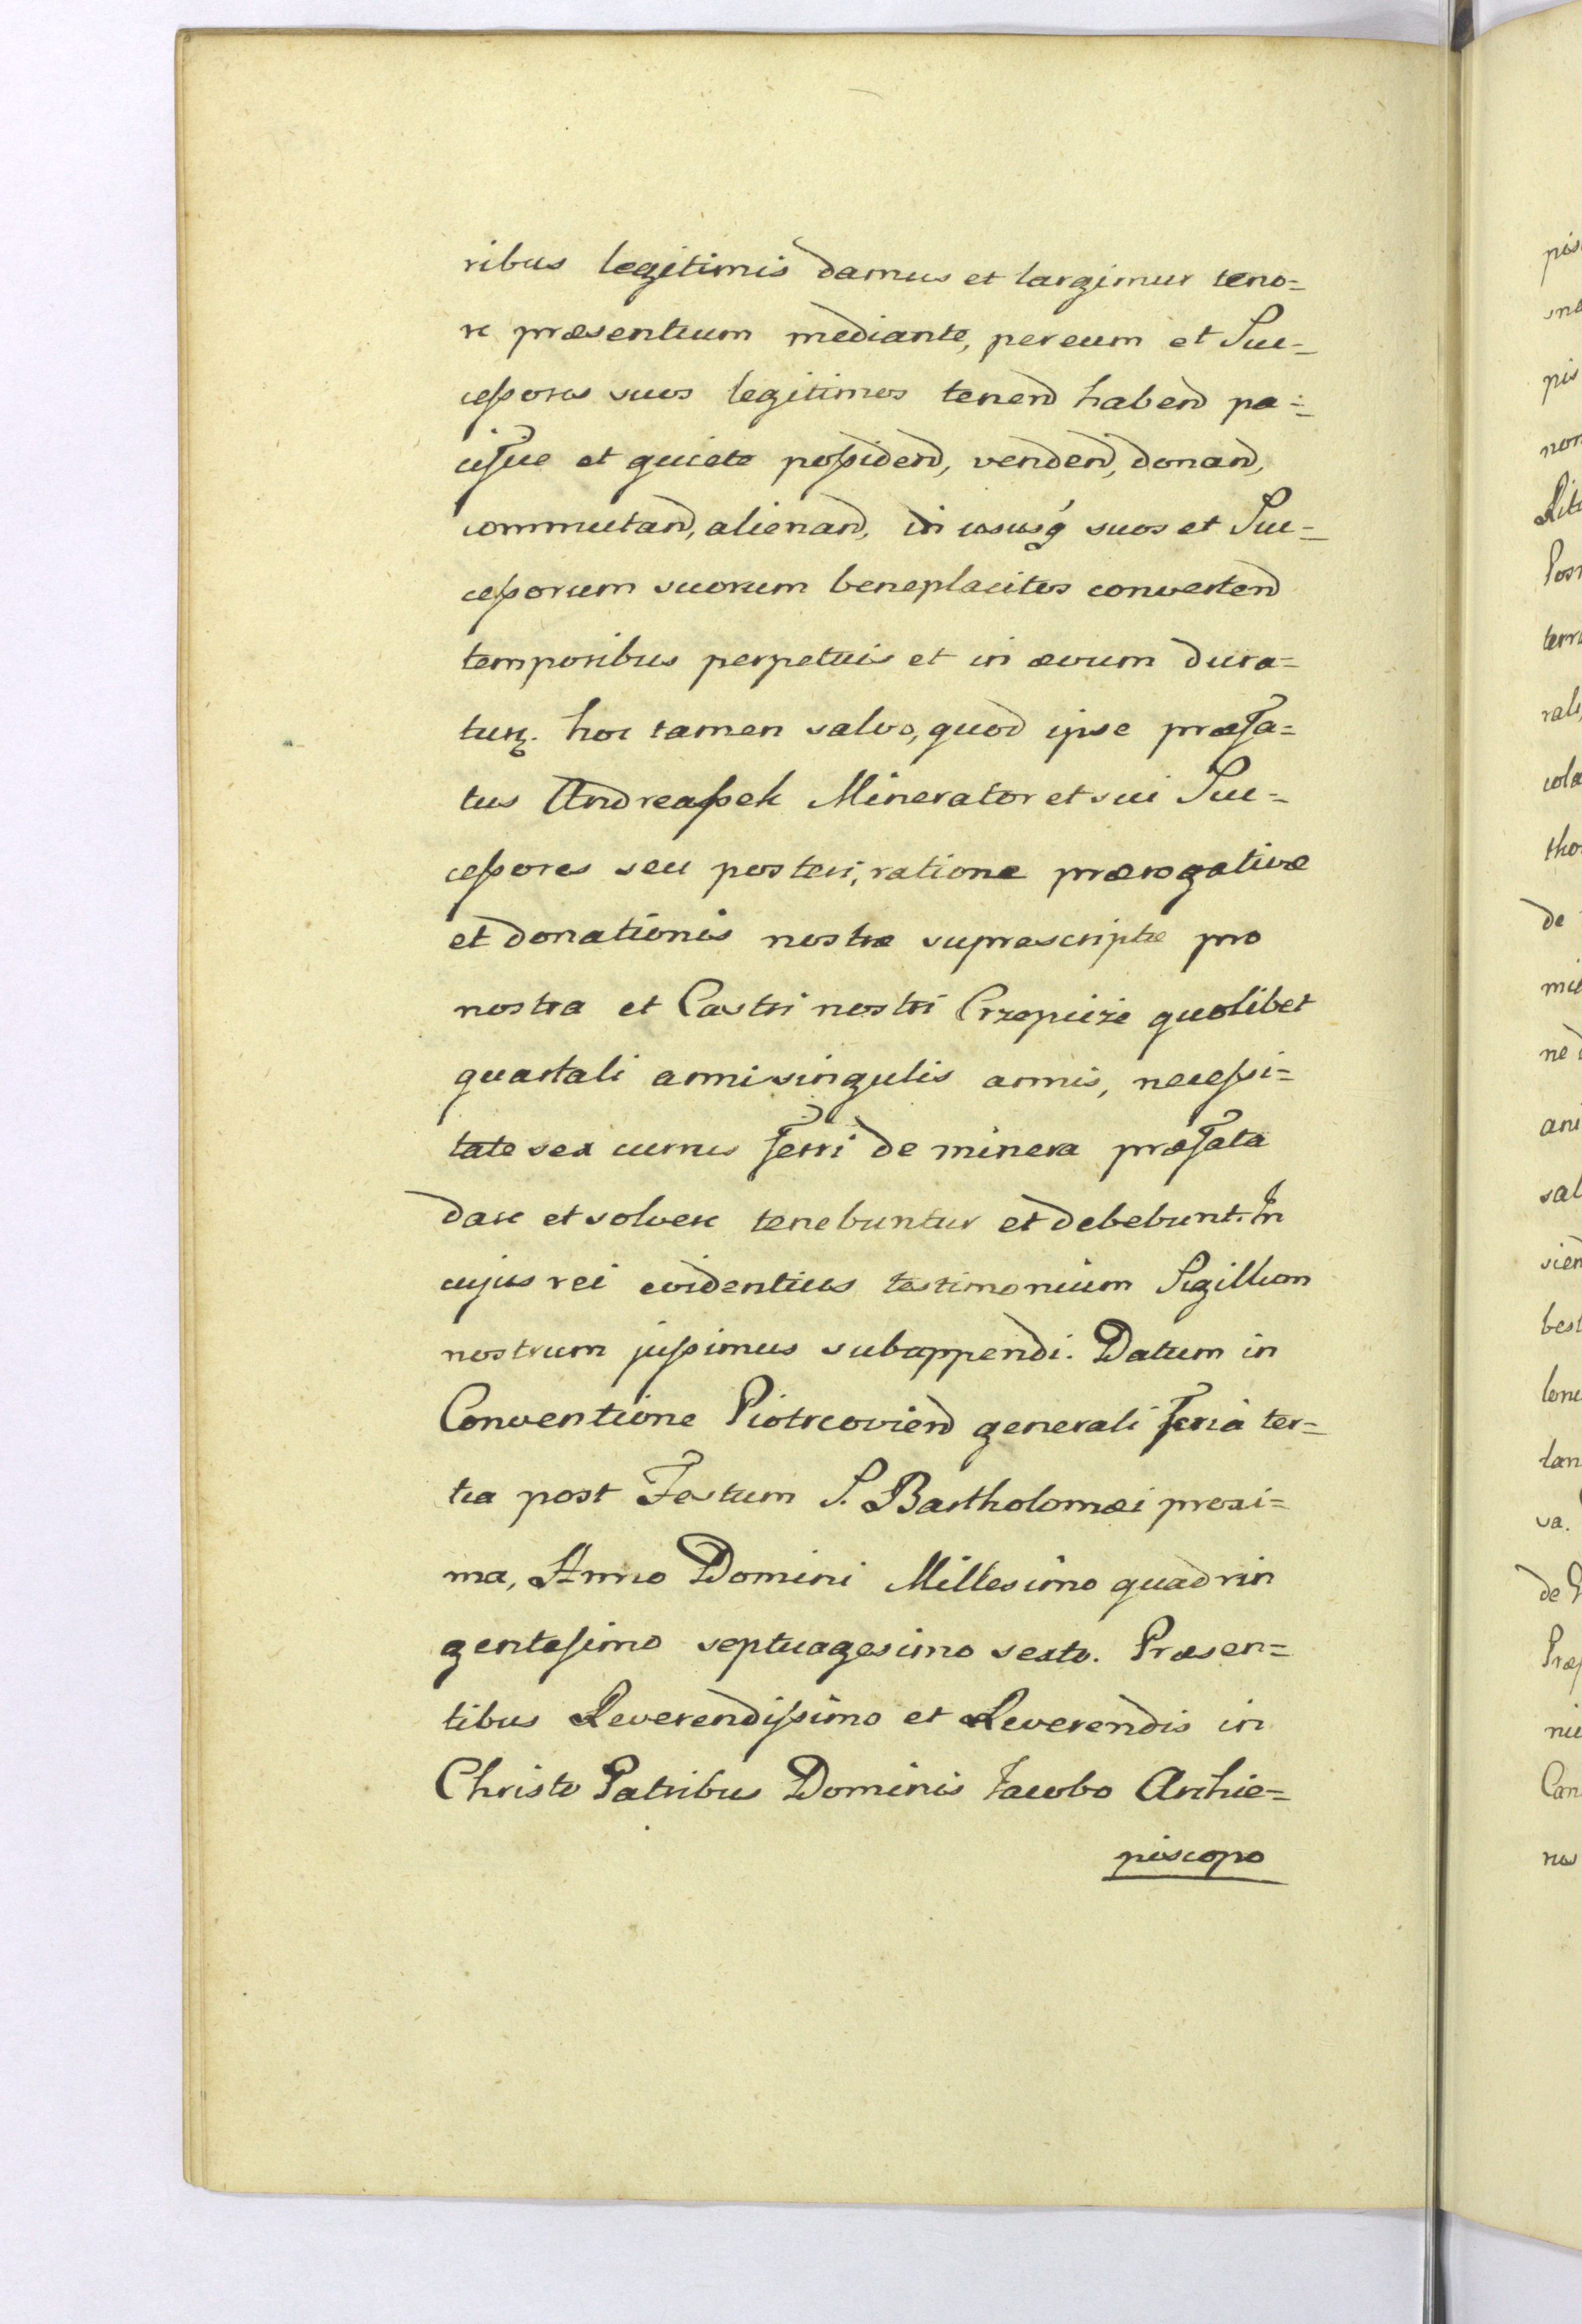 ribus legitimis damus et largimur teno=
re præsentium mediante, per eum et Suc=
ceſsores suos legitimos tenend habend pa=
cifice et quiete poſsidend, vendend, donand,
commutand, alienand, in ususq́ suos et Suc=
ceſsorum suorum beneplacitos convertend
temporibus perpetuis et in ævum dura=
turꝫ. hoc tamen salvo, quod ipse præfa=
tus Andreaſsek Minerator et sui Suc=
ceſsores seu posteri, ratione prærogativæ
et donationis nostræ suprascriptæ pro
nostra et Castri nostri Crzepicze quolibet
quartali anni singulis annis, neceſsi=
tate sex currus ferri de minera præfata
dare et solvere tenebuntur et debebunt. In
cujus rei evidentius testimonium Sigillum
nostrum juſsimus subappendi. Datum in
Conventione Piotrcoviend generali feria ter=
tia post Festum S. Bartholomæi proxi=
ma, Anno Domini Millesimo quadrin
genteſimo septuagesimo sexto. Præsen=
tibus Reverendiſsimo et Reverendis in
Christo Patribus Dominis Jacobo Archie=
piscopo